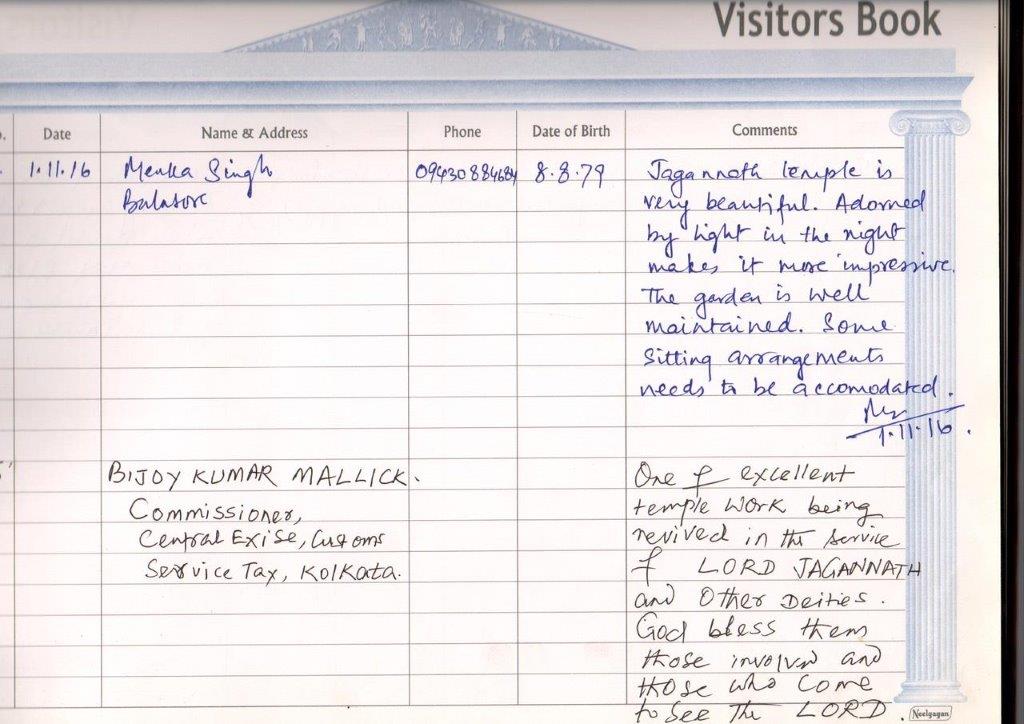 Visitors Book
Date Name & Address Phone Date of Birth Comments
1.11.16 Menka Singh 09430884684 8.8.79 Jagannath temple is
Balasore very beautiful. Adorned
by light in the night
makes it more impressive.
The garden is well
maintained. Some
Sitting arrangements
needs to be accomodated.
1.11.16.
BIJOY KUMAR MALLICK. One of excellent
Commissioner, temple work being
Central Exise, Customs revived in the service
Service Tax, Kolkata. of LORD JAGANNATH
and Other Deities.
God bless them
those involved and
those who come
to see The LORD.
Neelgagan